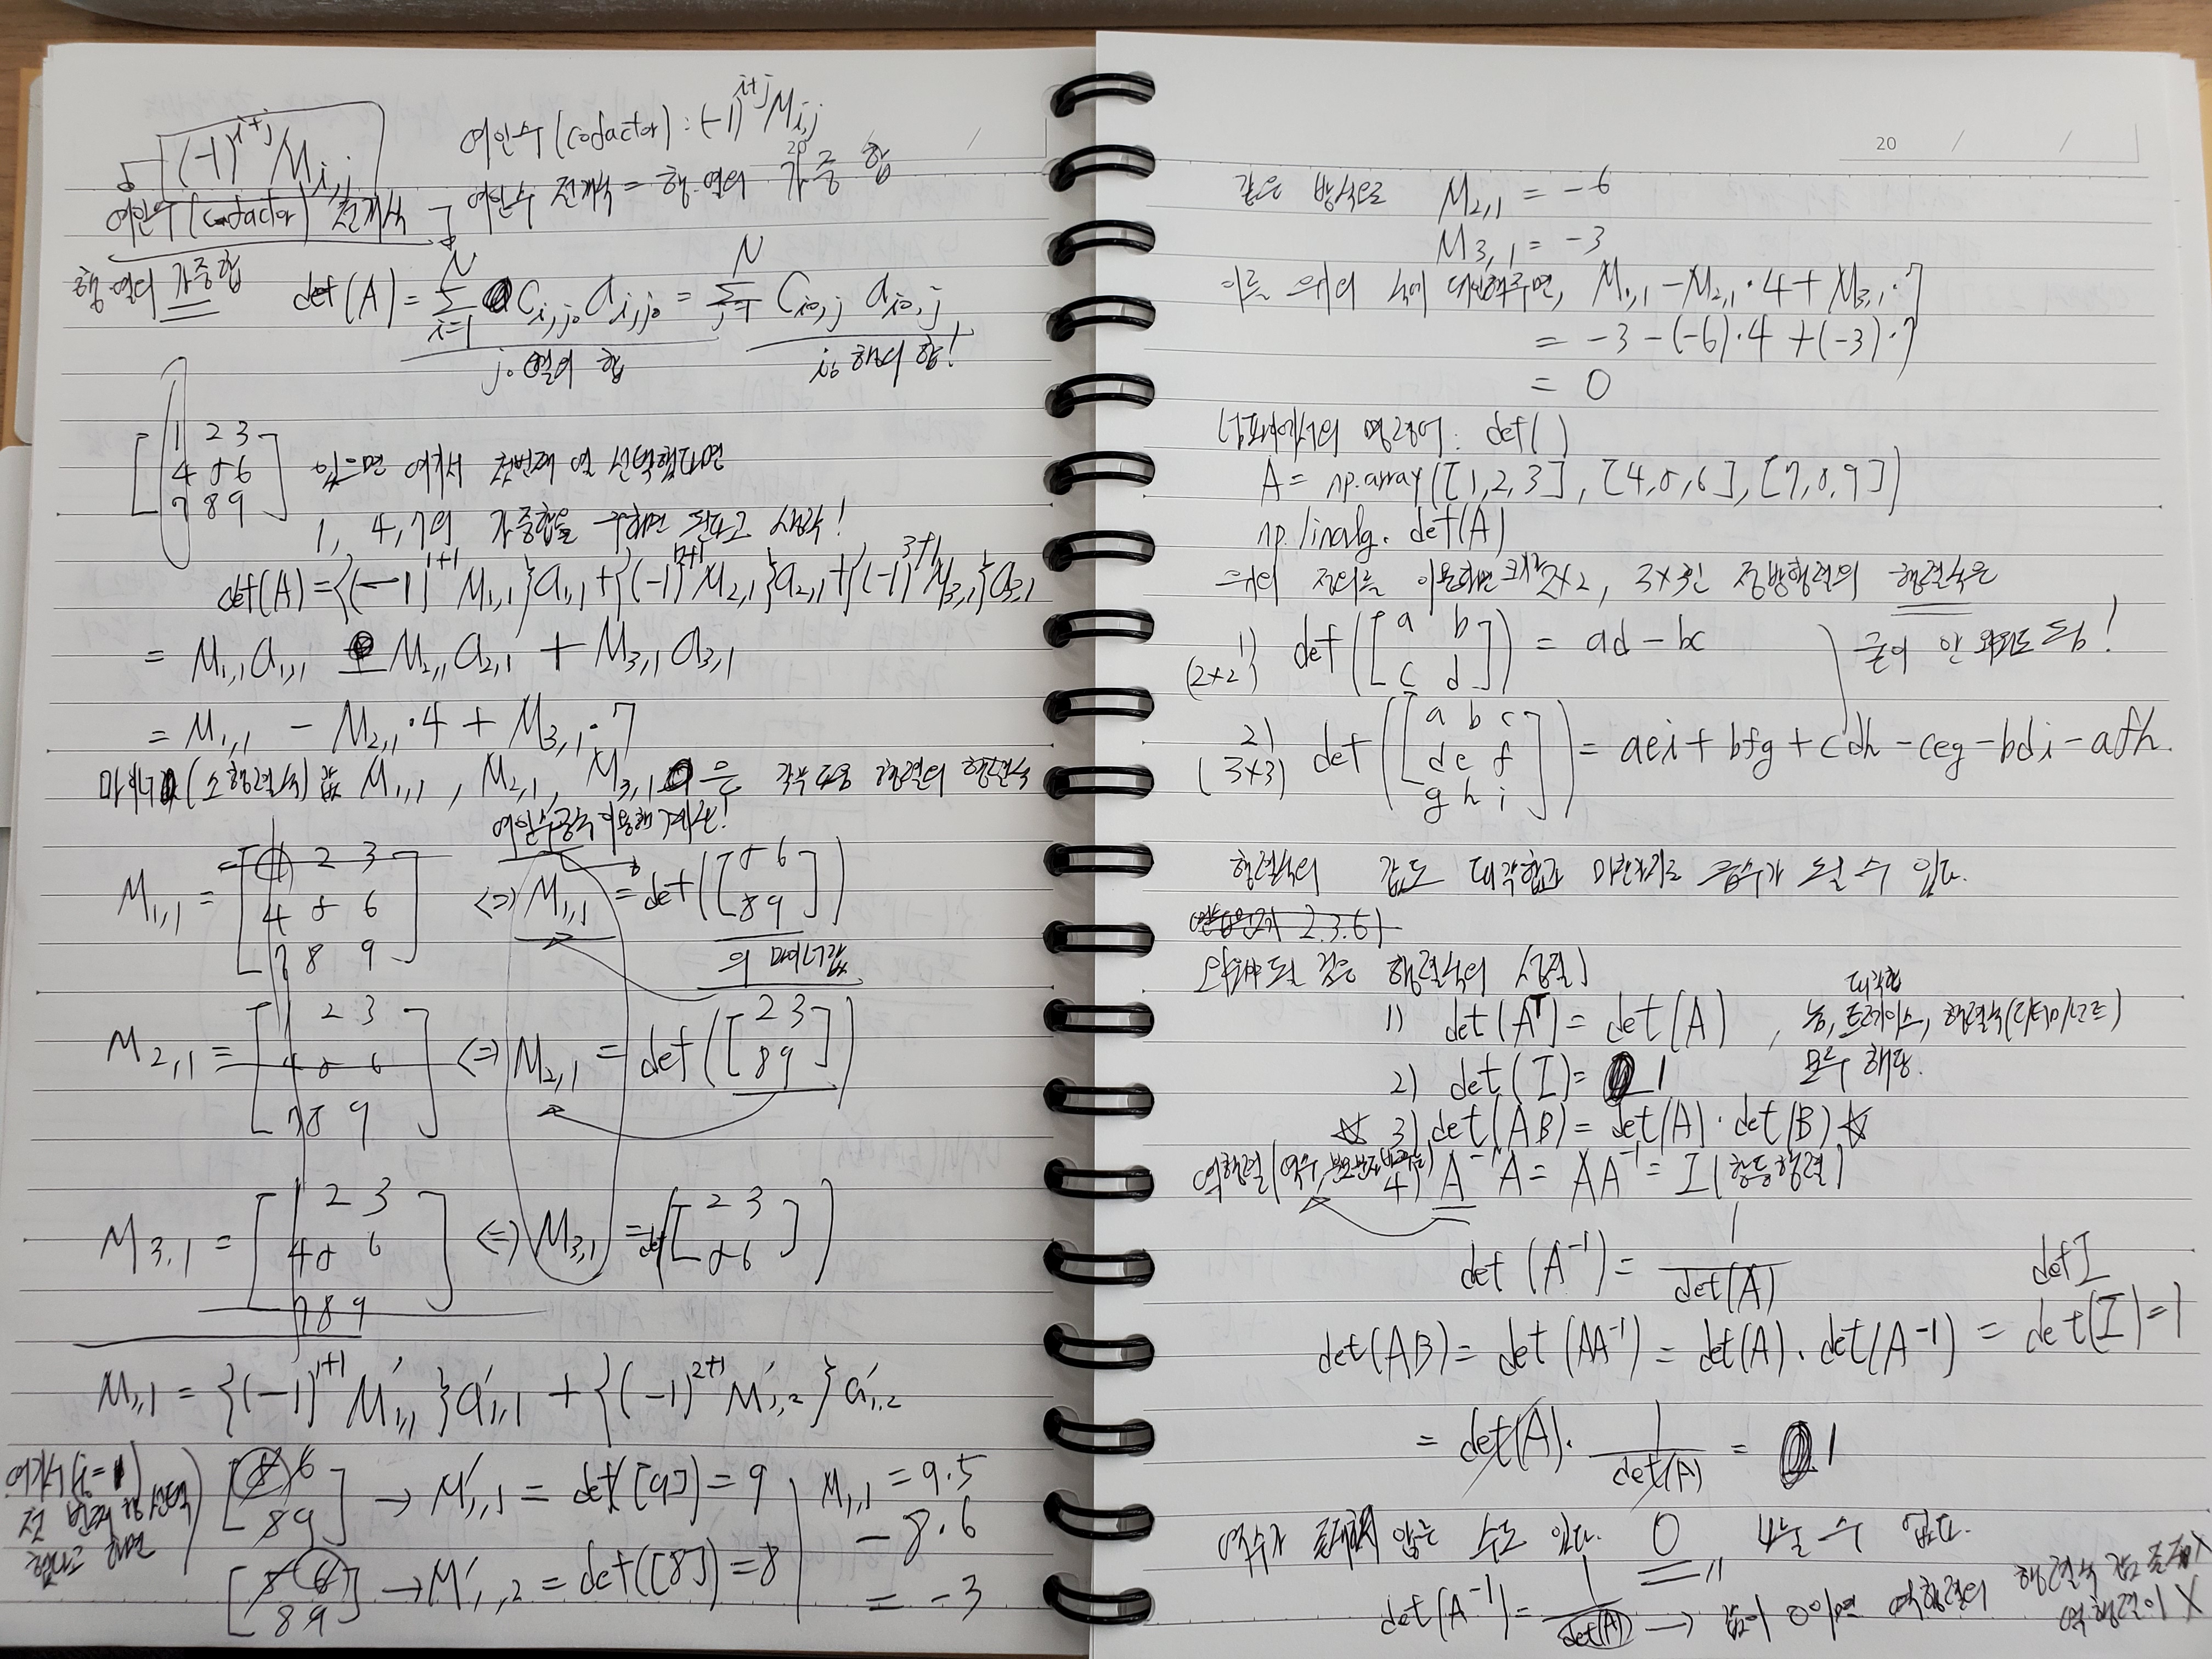 (-1)^{i+j} M_{i,j}
여인수(cofactor) : (-1)^{i+j} M_{i,j}
여인수(cofactor) 전개식
여인수 전개식 = 행·열의 가중합
행·열의 가중합
det(A) = Σ_{i=1}^{N} C_{i,j₀} a_{i,j₀} = Σ_{j=1}^{N} C_{i₀,j} a_{i₀,j}
j₀ 열의 합
i₀ 행의 합!
[1 2 3
4 5 6
7 8 9]
있으면 여기서 첫번째 열 선택했다면
1, 4, 7의 가중합을 구하면 된다고 생각!
det(A) = {(-1)^{1+1} M_{1,1}}a_{1,1} + {(-1)^{2+1} M_{2,1}}a_{2,1} + {(-1)^{3+1} M_{3,1}}a_{3,1}
= M_{1,1}a_{1,1} - M_{2,1}a_{2,1} + M_{3,1}a_{3,1}
= M_{1,1} - M_{2,1}·4 + M_{3,1}·7
마이너(소행렬식)값 M_{1,1}, M_{2,1}, M_{3,1}은 각각 다음 행렬의 행렬식
여인수공식 이용해 계산!
M_{1,1} = [1 2 3
4 5 6
7 8 9] <=> M_{1,1} = det([5 6
8 9])
의 마이너값
M_{2,1} = [1 2 3
4 5 6
7 8 9] <=> M_{2,1} = det([2 3
8 9])
M_{3,1} = [1 2 3
4 5 6
7 8 9] <=> M_{3,1} = det([2 3
5 6])
M_{1,1} = {(-1)^{1+1} M'_{1,1}}a'_{1,1} + {(-1)^{2+1} M'_{1,2}}a'_{1,2}
여기서 (i=1)
첫 번째 행 선택
했다고 하면
[5 6
8 9] → M'_{1,1} = det([9]) = 9
[5 6
8 9] → M'_{1,2} = det([8]) = 8
M_{1,1} = 9·5
- 8·6
= -3
20 / /
같은 방식으로 M_{2,1} = -6
M_{3,1} = -3
이를 위의 식에 대입해주면, M_{1,1} - M_{2,1}·4 + M_{3,1}·7
= -3 - (-6)·4 + (-3)·7
= 0
넘파이에서의 명령어: det()
A = np.array([1,2,3], [4,5,6], [7,8,9])
np.linalg.det(A)
위의 정의를 이용하면 크기가 2×2, 3×3인 정방행렬의 행렬식은
1) (2×2) det([a b
c d]) = ad - bc
굳이 안 외워도 됨!
2) (3×3) det([a b c
d e f
g h i]) = aei + bfg + cdh - ceg - bdi - afh.
행렬식의 값도 대각합과 마찬가지로 음수가 될 수 있다.
연습문제 2.3.6)
알아두면 좋은 행렬식의 성질
1) det(A^T) = det(A), 놈, 트레이스, 행렬식(디터미넌트)
대각합
모두 해당.
2) det(I) = 1
☆ 3) det(AB) = det(A)·det(B) ☆
역행렬(역수, 분모분자
4) A^{-1}A = AA^{-1} = I (항등행렬)
det(A^{-1}) = 1/det(A)
det I
det(AB) = det(AA^{-1}) = det(A)·det(A^{-1}) = det(I) = 1
= det(A)·1/det(A) = 1
역수가 존재하지 않는 수도 있다. 0 나눌 수 없다.
det(A^{-1}) = 1/det(A) → 값이 0이면 역행렬의 행렬식 값 존재X
역행렬이 X